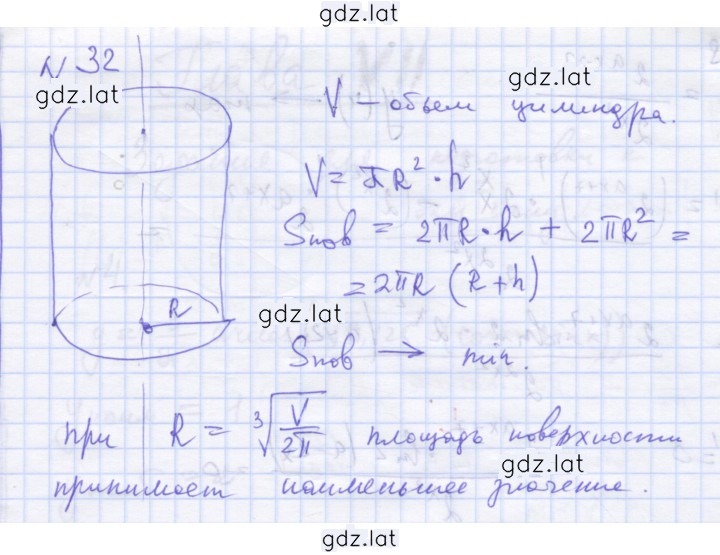 gdz.lat
N 32
gdz.lat
gdz.lat
V – объем цилиндра.
V = πR² · h
Sпов = 2πR·h + 2πR² =
= 2πR (R+h)
R
gdz.lat
Sпов → min.
при R = ∛(V/2π) площадь поверхности
gdz.lat
принимает наименьшее значение.
gdz.lat